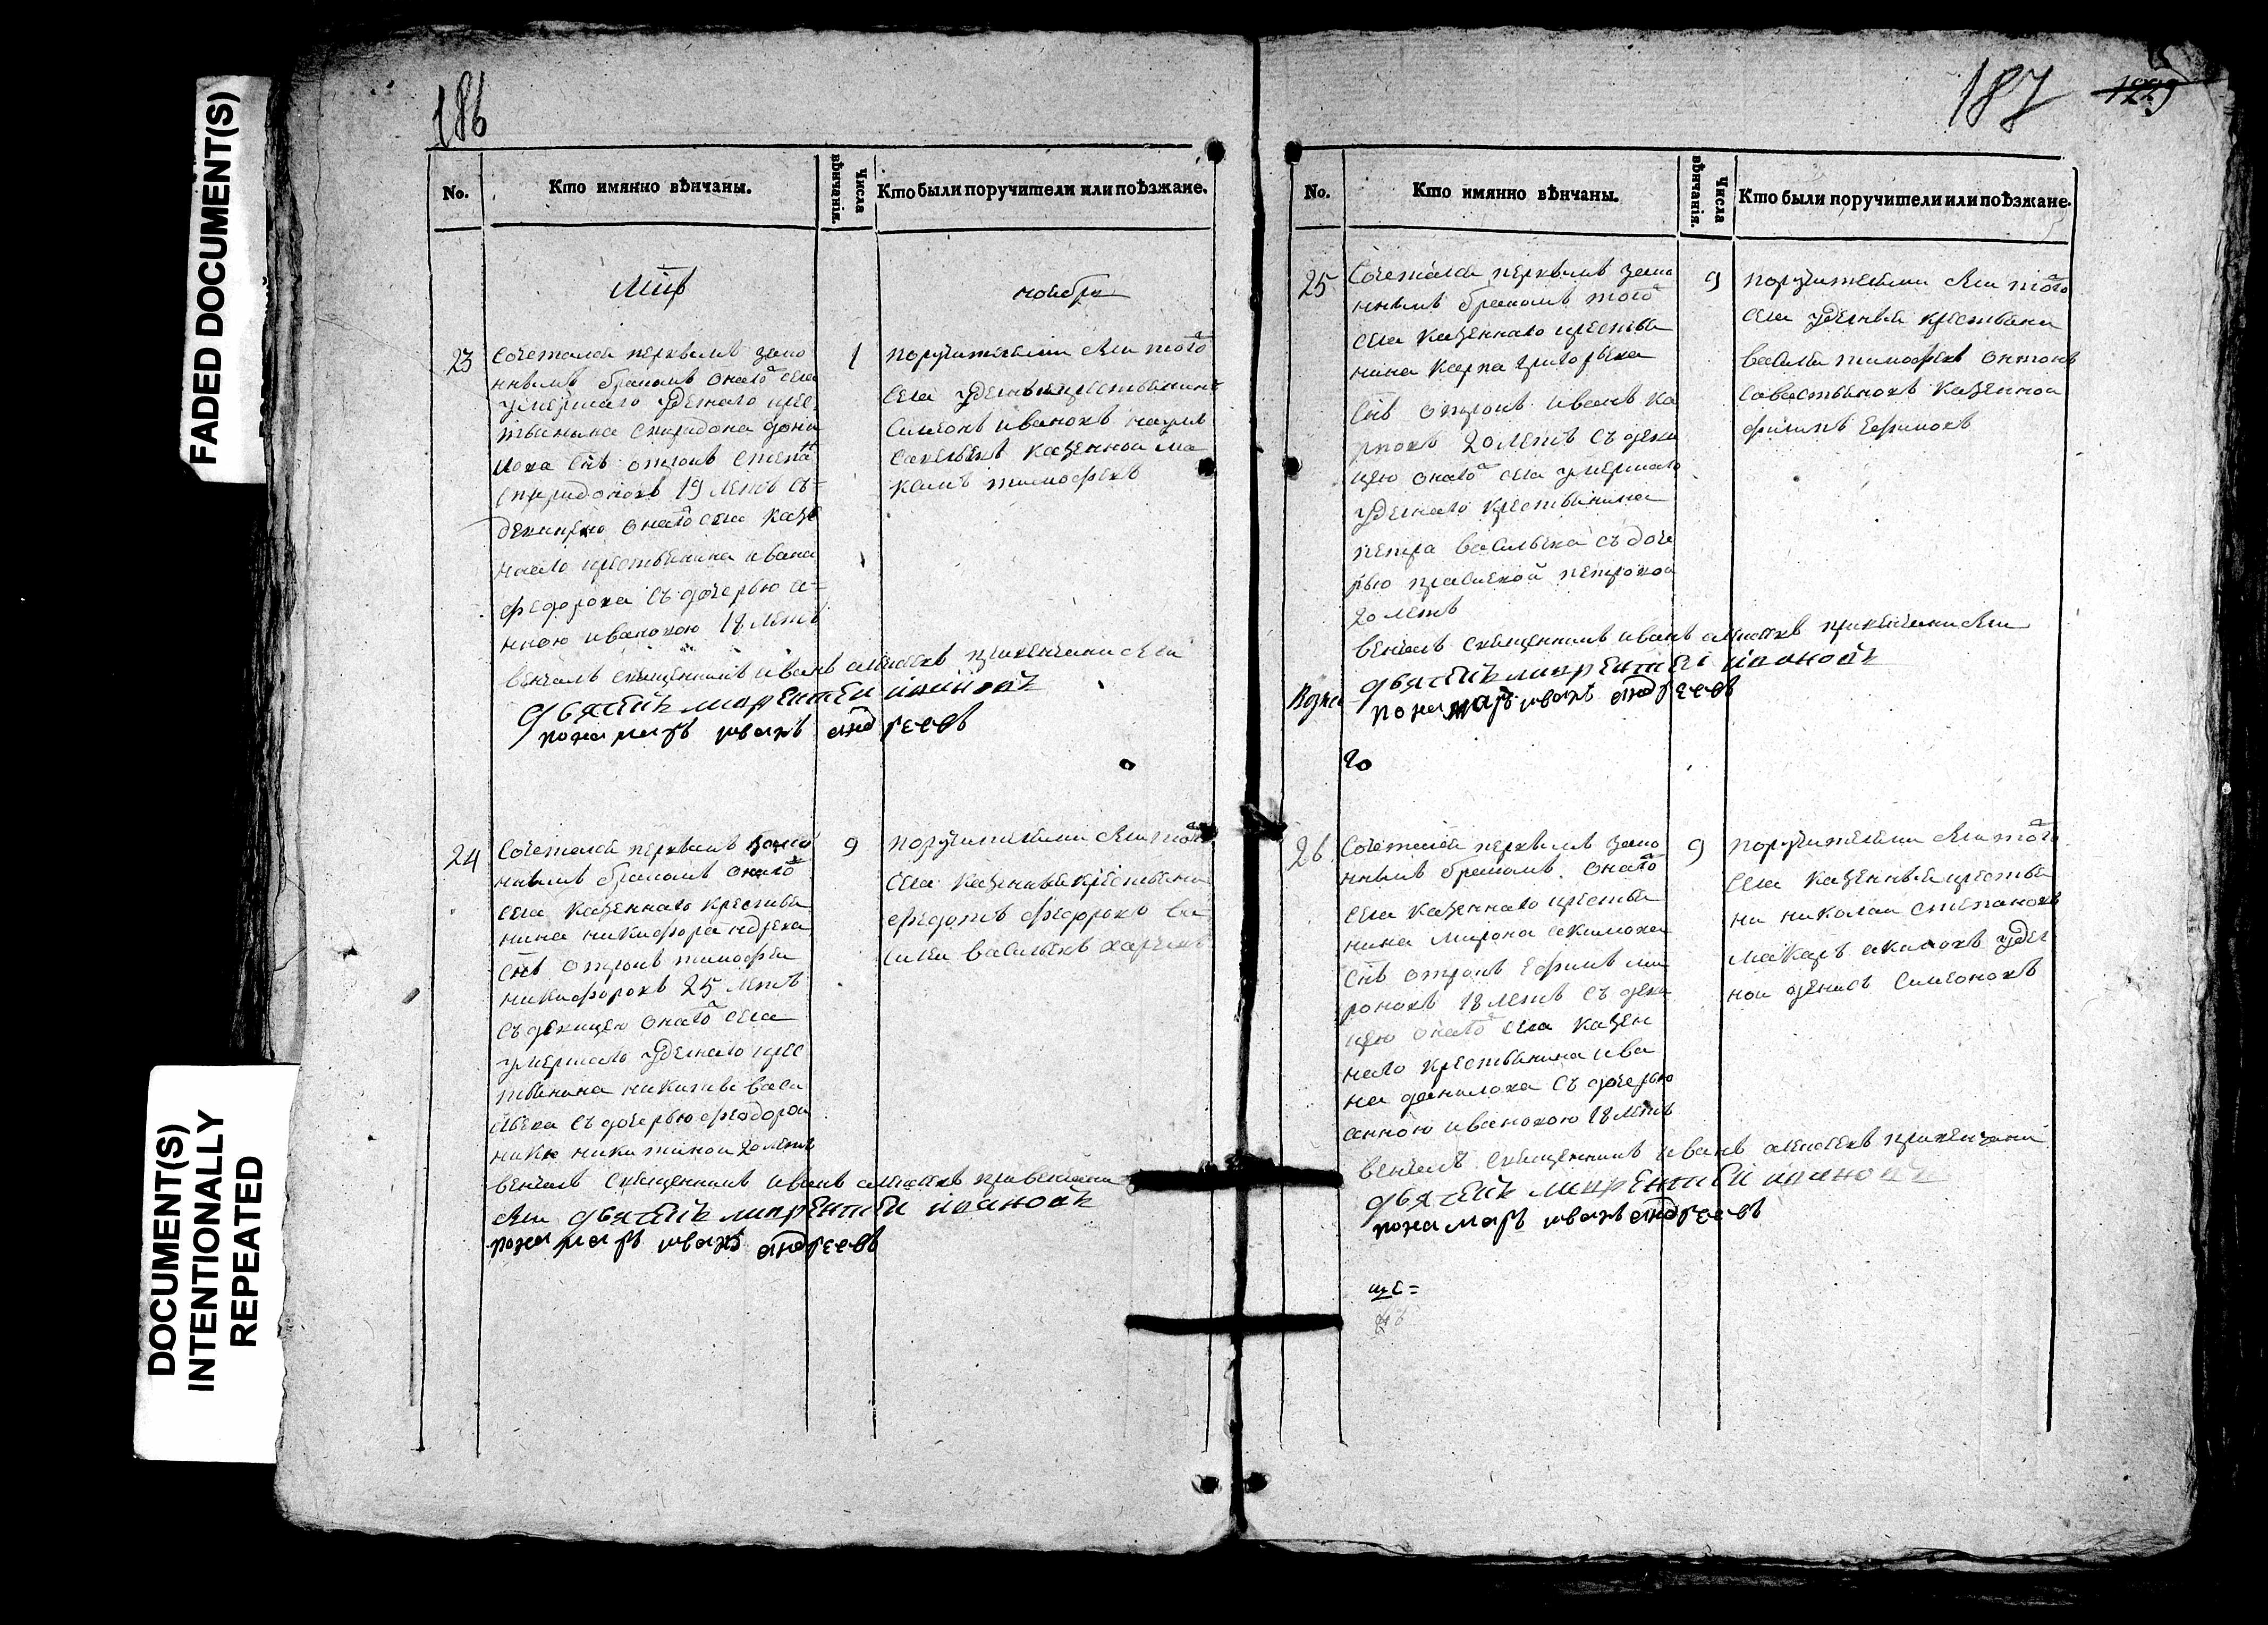 FADED DOCUMENT(S)
DOCUMENT(S)
INTENTIONALLY
REPEATED
186
No. Кто имянно вѣнчаны. Числа вѣнчанія. Кто были поручители или поѣзжане.
ноября
23
Сочетался первымъ зако
ннымъ бракомъ онаго села
умершаго уделнаго крес
тьянина Спиридона
снъ отрокъ Степа
Спиридоновъ 19 летъ съ=
девицею онаго села казе
ннаго крестьянина ивана
федорова съ дочерью а=
нною ивановою 18 летъ
1
поручителями были того
села уделныя крестьянин
Симеонъ ивановъ наумъ
Савельевъ казенной ма
каръ тимофеевъ
венчалъ священникъ иванъ алексеевъ при венчании были
дьячекъ лаврентеи ивановъ
понамарь иванъ андреевъ
24
Сочетался первымъ зако
ннымъ бракомъ онаго
села казеннаго крестья
нина никифора ндреева
снъ отрокъ тимофеи
никифоровъ 25 летъ
съ девицею онаго села
умершаго уделнаго крес
тьянина никиты васи
льева съ дочерью феодорои
никитиной 20 летъ
9
поручителями были того
села казенныя крестьяни
федотъ федоровъ ва
силеи васильевъ
венчалъ священникъ иванъ алексеевъ при венчании
были дьячекъ лаврентеи ивановъ
понамарь иванъ андреевъ
187
No. Кто имянно вѣнчаны. Числа вѣнчанія. Кто были поручители или поѣзжане.
25
Сочетался первымъ зако
ннымъ бракомъ того
села казеннаго крестья
нина карпа григорьева
снъ отрокъ иванъ ка
рповъ 20 летъ съ деви
цею онаго села умершаго
уделнаго крестьянина
петра васильева съ доче
рью петровой
20 летъ
9
поручителями были того
села уделныя крестьяни
василеи тимофеевъ антонъ
савостьяновъ казенной
филипъ ефимовъ
венчалъ священникъ иванъ алексеевъ при венчании были
дьячекъ лаврентеи ивановъ
понамарь иванъ андреевъ
26
Сочетался первымъ зако
ннымъ бракомъ онаго
села казеннаго крестья
нина мирона акимова
снъ отрокъ ефимъ ми
роновъ 18 летъ съ деви
цею онаго села казен
наго крестьянина ива
на данилова съ дочерью
анною ивановою 18 летъ
9
поручителями были того
села казенныя крестья
ни николаи степановъ
макаръ акимовъ удел
ной денисъ симеоновъ
венчалъ священникъ иванъ алексеевъ при венчании
дьячекъ лаврентеи ивановъ
понамарь иванъ андреевъ